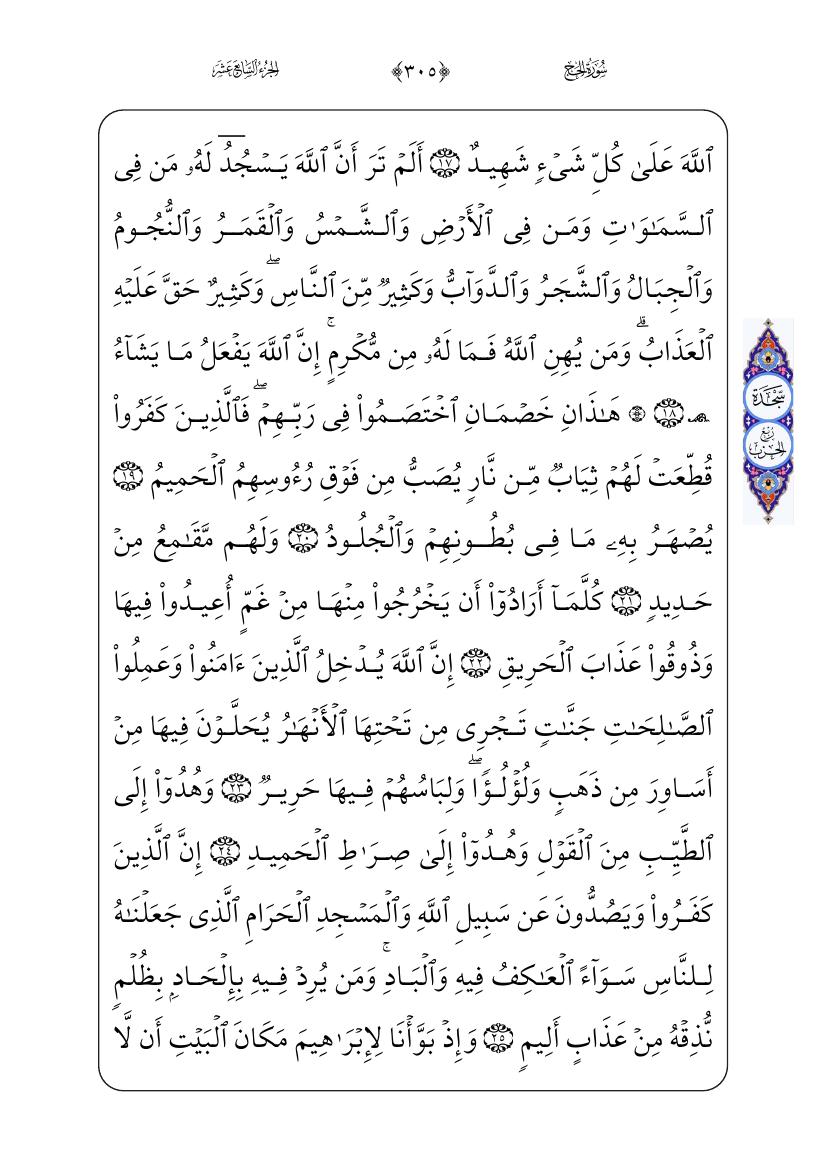 سُورَةُ الحَجِّ ﴿٣٠٥﴾ الجُزْءُ السَّابِعَ عَشَرَ
ٱللَّهَ عَلَىٰ كُلِّ شَىْءٍۢ شَهِيدٌ ١٧ أَلَمْ تَرَ أَنَّ ٱللَّهَ يَسْجُدُ لَهُۥ مَن فِى
ٱلسَّمَٰوَٰتِ وَمَن فِى ٱلْأَرْضِ وَٱلشَّمْسُ وَٱلْقَمَرُ وَٱلنُّجُومُ
وَٱلْجِبَالُ وَٱلشَّجَرُ وَٱلدَّوَآبُّ وَكَثِيرٌۭ مِّنَ ٱلنَّاسِ ۖ وَكَثِيرٌ حَقَّ عَلَيْهِ
ٱلْعَذَابُ ۗ وَمَن يُهِنِ ٱللَّهُ فَمَا لَهُۥ مِن مُّكْرِمٍ ۚ إِنَّ ٱللَّهَ يَفْعَلُ مَا يَشَآءُ
۩ ١٨ ۞ هَٰذَانِ خَصْمَانِ ٱخْتَصَمُوا۟ فِى رَبِّهِمْ ۖ فَٱلَّذِينَ كَفَرُوا۟
قُطِّعَتْ لَهُمْ ثِيَابٌۭ مِّن نَّارٍۢ يُصَبُّ مِن فَوْقِ رُءُوسِهِمُ ٱلْحَمِيمُ ١٩
يُصْهَرُ بِهِۦ مَا فِى بُطُونِهِمْ وَٱلْجُلُودُ ٢٠ وَلَهُم مَّقَٰمِعُ مِنْ
حَدِيدٍۢ ٢١ كُلَّمَآ أَرَادُوٓا۟ أَن يَخْرُجُوا۟ مِنْهَا مِنْ غَمٍّ أُعِيدُوا۟ فِيهَا
وَذُوقُوا۟ عَذَابَ ٱلْحَرِيقِ ٢٢ إِنَّ ٱللَّهَ يُدْخِلُ ٱلَّذِينَ ءَامَنُوا۟ وَعَمِلُوا۟
ٱلصَّٰلِحَٰتِ جَنَّٰتٍۢ تَجْرِى مِن تَحْتِهَا ٱلْأَنْهَٰرُ يُحَلَّوْنَ فِيهَا مِنْ
أَسَاوِرَ مِن ذَهَبٍۢ وَلُؤْلُؤًۭا ۖ وَلِبَاسُهُمْ فِيهَا حَرِيرٌۭ ٢٣ وَهُدُوٓا۟ إِلَى
ٱلطَّيِّبِ مِنَ ٱلْقَوْلِ وَهُدُوٓا۟ إِلَىٰ صِرَٰطِ ٱلْحَمِيدِ ٢٤ إِنَّ ٱلَّذِينَ
كَفَرُوا۟ وَيَصُدُّونَ عَن سَبِيلِ ٱللَّهِ وَٱلْمَسْجِدِ ٱلْحَرَامِ ٱلَّذِى جَعَلْنَٰهُ
لِلنَّاسِ سَوَآءً ٱلْعَٰكِفُ فِيهِ وَٱلْبَادِ ۚ وَمَن يُرِدْ فِيهِ بِإِلْحَادٍۭ بِظُلْمٍۢ
نُّذِقْهُ مِنْ عَذَابٍ أَلِيمٍۢ ٢٥ وَإِذْ بَوَّأْنَا لِإِبْرَٰهِيمَ مَكَانَ ٱلْبَيْتِ أَن لَّا
سَجْدَة
رُبْع
الحِزْب